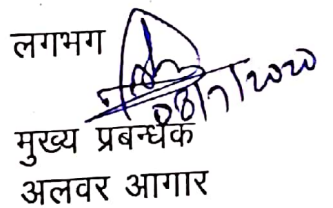 लगभग
08/7/2020
मुख्य प्रबन्धक
अलवर आगार